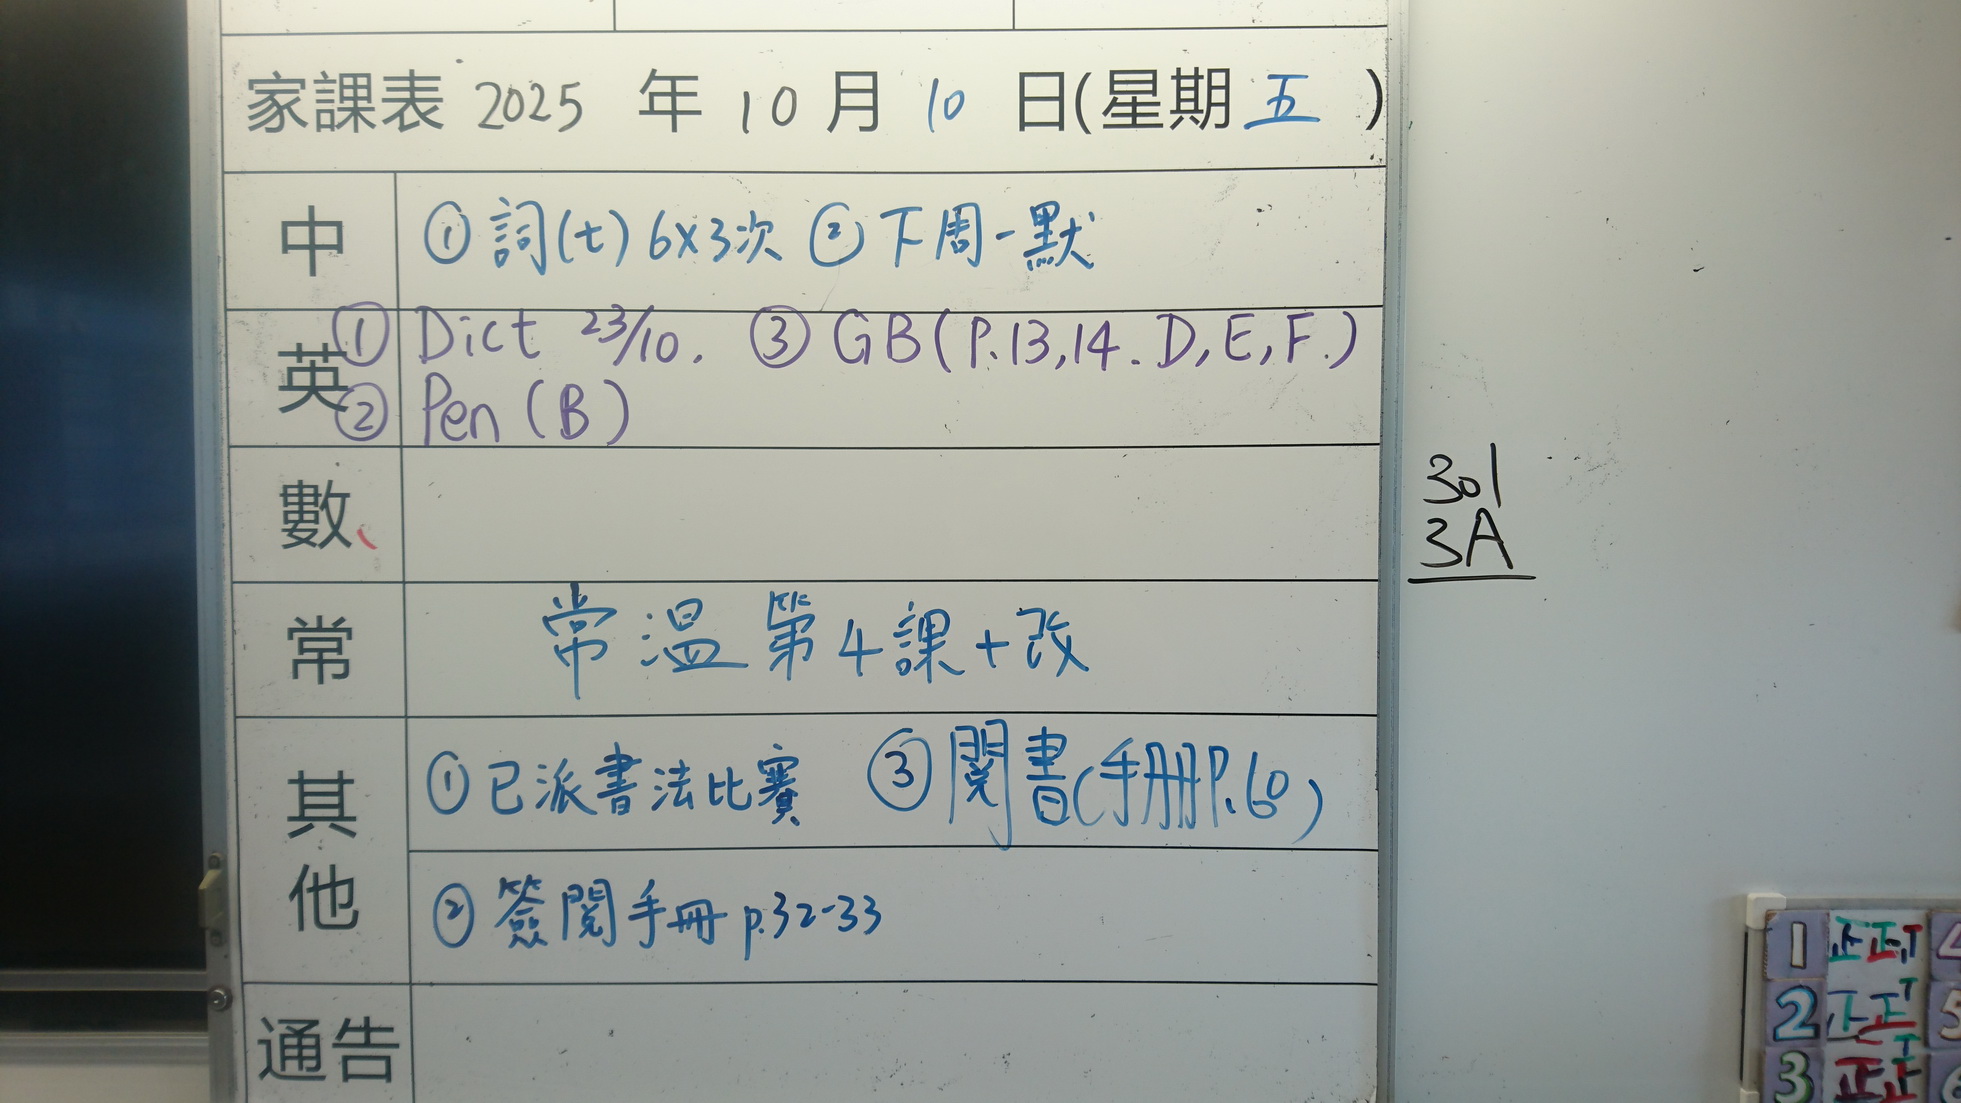 家課表 2025 年 10 月 10 日(星期 五 )
中 ① 詞(七) 6x3次 ② 下周一默
英 ① Dict 23/10. ③ GB (P.13,14. D, E, F.)
② Pen (B)
數
常 常温第4課+改
其他 ① 已派書法比賽 ③ 閱書(手冊P.60)
② 簽閱手冊 p.32-33
通告
301
3A
1 正正T
2 正正T
3 正正T